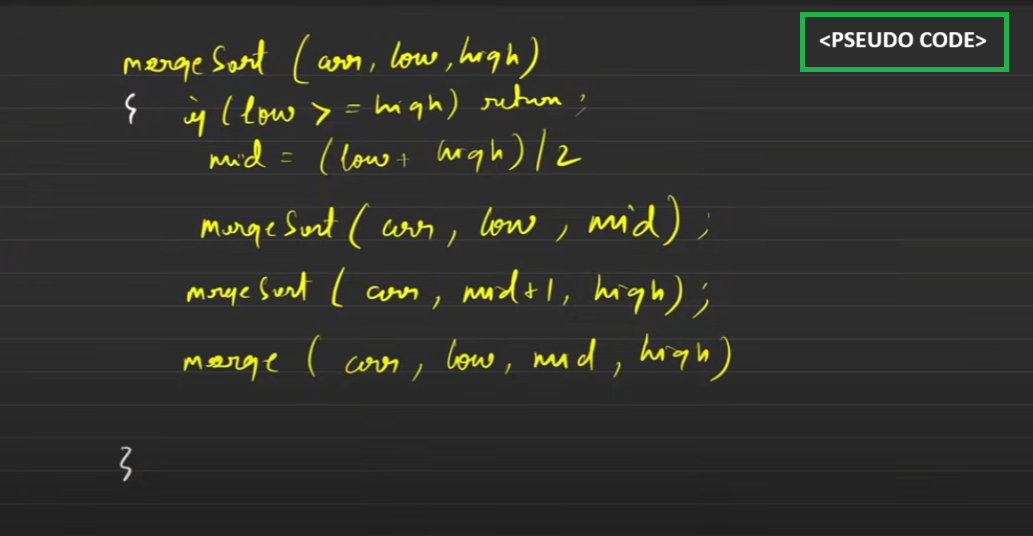 <PSEUDO CODE>
mergeSort (arr, low, high)
{ if (low >= high) return;
mid = (low + high) / 2
mergeSort (arr, low, mid);
mergeSort (arr, mid+1, high);
merge (arr, low, mid, high)
}